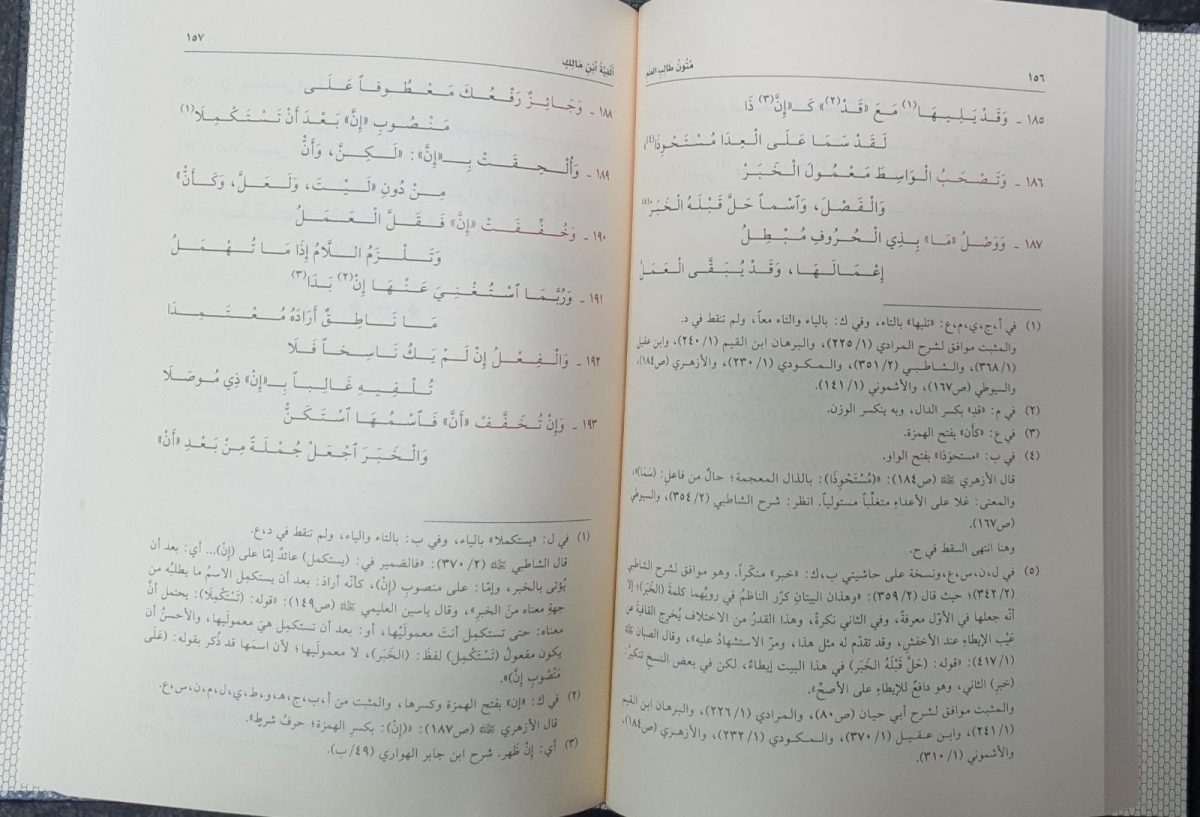 ١٥٦
مُتُونُ طَالِبِ العِلْمِ
١٨٥ ـ وَقَدْ يَلِيهَا(١) مَعَ «قَدْ(٢)» كَـ«إِنَّ(٣) ذَا
لَقَدْ سَمَا عَلَى الْعِدَا مُسْتَحْوِذَا(٤)»
١٨٦ ـ وَتَصْحَبُ الْوَاسِطَ مَعْمُولَ الْخَبَرْ
وَالْفَصْلَ، وَٱسْماً حَلَّ قَبْلَهُ الْخَبَرْ(٥)
١٨٧ ـ وَوَصْلُ «مَا» بِذِي الْحُرُوفِ مُبْطِلُ
إِعْمَالَهَا، وَقَدْ يُبَقَّى الْعَمَلُ
(١) في أ،ج،ي،م،ع: «تليها» بالتاء، وفي ك: بالياء والتاء معاً، ولم تنقط في د.
والمثبت موافق لشرح المرادي (١/ ٢٢٥)، والبرهان ابن القيم (١/ ٢٤٠)، وابن عقيل
(١/ ٣٦٨)، والشاطبي (٢/ ٣٥١)، والمكودي (١/ ٢٣٠)، والأزهري (ص١٨٤)،
والسيوطي (ص١٦٧)، والأشموني (١/ ١٤١).
(٢) في م: «قدِ» بكسر الدال، وبه ينكسر الوزن.
(٣) في ع: «كأَن» بفتح الهمزة.
(٤) في ب: «مستحوَذا» بفتح الواو.
قال الأزهري ﷺ (ص١٨٤): «(مُسْتَحْوِذَا): بالذال المعجمة؛ حالٌ من فاعلِ: (سَمَا)»،
والمعنى: عَلا على الأعداءِ متغلّباً مستولياً. انظر: شرح الشاطبي (٢/ ٣٥٤)، والسيوطي
(ص١٦٧).
وهنا انتهى السقط في ح.
(٥) في ل،ن،س،ع،ونسخة على حاشيتي ب،ك: «خبر» منكّراً. وهو موافق لشرح الشاطبي
(٢/ ٣٤٢)؛ حيث قال (٢/ ٣٥٩): «وهذان البيتانِ كرّر الناظمُ في رويّهما كلمةَ (الخَبَر)؛ إلا
أنّه جعلها في الأوّل معرفةً، وفي الثاني نكرةً، وهذا القدرُ من الاختلاف يُخرج القافيةَ عن
عَيْب الإيطاء عند الأخفش، وقد تقدّم له مثل هذا، ومرّ الاستشهادُ عليه»، وقال الصبان
(١/ ٤١٧): «قوله: (حَلَّ قَبْلَهُ الخَبَر) في هذا البيت إيطاءٌ، لكن في بعض النسخِ تنكيرُ:
(خبر) الثاني، وهو دافعٌ للإيطاءِ على الأصحِّ».
والمثبت موافق لشرح أبي حيان (ص٨٠)، والمرادي (١/ ٢٢٦)، والبرهان ابن القيم
(١/ ٢٤١)، وابن عقيل (١/ ٣٧٠)، والمكودي (١/ ٢٣٢)، والأزهري (ص١٨٤)،
والأشموني (١/ ٣١٠).
أَلْفِيَّةُ ٱبْنِ مَالِكٍ
١٥٧
١٨٨ ـ وَجَائِزٌ رَفْعُكَ مَعْطُوفاً عَلَى
مَنْصُوبِ «إِنَّ» بَعْدَ أَنْ تَسْتَكْمِلَا(١)
١٨٩ ـ وَأُلْحِقَتْ بِـ«إِنَّ»: «لَكِنَّ، وَأَنّْ
مِنْ دُونِ «لَيْتَ، وَلَعَلَّ، وَكَأَنّْ»
١٩٠ ـ وَخُفِّفَتْ «إِنَّ» فَقَلَّ الْعَمَلُ
وَتَلْزَمُ اللَّامُ إِذَا مَا تُهْمَلُ
١٩١ ـ وَرُبَّمَا ٱسْتُغْنِيَ عَنْهَا إِنْ(٢) بَدَا(٣)
مَا نَاطِقٌ أَرَادَهُ مُعْتَمِدَا
١٩٢ ـ وَالْفِعْلُ إِنْ لَمْ يَكُ نَاسِخاً فَلَا
تُلْفِيهِ غَالِباً بِـ«إِنْ» ذِي مُوصَلَا
١٩٣ ـ وَإِنْ تُخَفَّفْ «أَنَّ» فَٱسْمُهَا ٱسْتَكَنّْ
وَالْخَبَرَ ٱجْعَلْ جُمْلَةً مِنْ بَعْدِ «أَنْ»
(١) في ل: «يستكملا» بالياء، وفي ب: بالتاء والياء، ولم تنقط في د،ع.
قال الشاطبي ﷺ (٢/ ٣٧٠): «فالضمير في: (يستكمل) عائدٌ إمّا على (إنْ)... أي: بعد أن
يُؤتى بالخبر، وإمّا: على منصوبِ (إنْ)، كأنّه أرادَ: بعد أن يستكمِل الاسمُ ما يطلبُه من
جهةِ معناه منَ الخبرِ»، وقال ياسين العليمي ﷺ (ص١٤٩): «قوله: (تَسْتَكْمِلَا): يحتمل أنَّ
معناه: حتى تستكمِل أنتَ معمولَيْها، أو: بعد أن تستكمِل هيَ معمولَيها، والأحسنُ أن
يكون مفعولُ (تَسْتَكْمِل) لفظَ: (الخَبَر)، لا معمولَيها؛ لأن اسمَها قد ذُكر بقوله: (عَلَى
مَنْصُوبِ إِنّْ)».
(٢) في ك: «إن» بفتح الهمزة وكسرها، والمثبت من أ،ب،ج،هـ،و،ط،ي،ل،م،ن،س،ع.
قال الأزهري ﷺ (ص١٨٧): «(إنْ): بكسر الهمزة؛ حرفُ شرطٍ».
(٣) أي: إنْ ظَهر. شرح ابن جابر الهواري (٤٩/ ب).